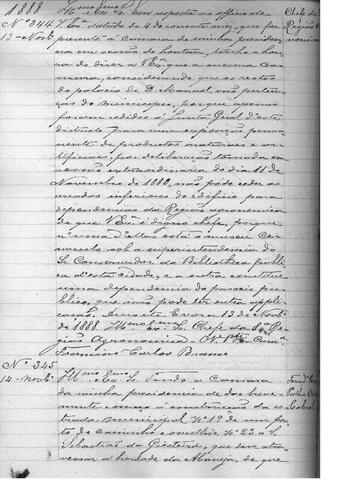 1888
Nº 344
13-Novbº
Illmo Exmo Sr. Em resposta ao officio de
V. Exª datado de 4 do corrente mez, que foi
presente á camara da minha presidencia
em sessão de hontem, tenho a honra
de dizer a V. Exª que a mesma Camara,
considerando que os restos
do palacio de D. Manuel são pertença
do municipio, porque apenas
foram cedidos á Junta Geral d'este
districto para uma exposição permanente
de productos naturaes e artificiaes,
por deliberação tomada em
sessão extraordinaria do dia 11 de
Novembro de 1880, não pode ceder as
arcadas inferiores do edificio para
dependencias da Região agronomica
de que V. Exª é digno chefe, porque
n'uma d'ellas está o museu Cenaculo
sob a superintendencia do
Sr. Conservador da Bibliotheca publica
d'esta cidade, e a outra constitue
uma dependencia do passeio publico,
que não pode ter outra applicação.
Deus etc. Evora 13 de Novbº
de 1888. Illmo Exmo Sr. Chefe da 8ª Região
Agronomica - O Pte da Camª
Francisco Carlos Bramo
Chefe da
Região
Nº 345
14-Novbº
Illmo Exmo Sr. Tendo a Camara
da minha presidencia de dar brevemente
começo á construcção da estrada
municipal Nº 19 de um porto
de caminho e Nº 22 a S.
Sebastião da Giesteira, que deve atravessar
a herdade da de que